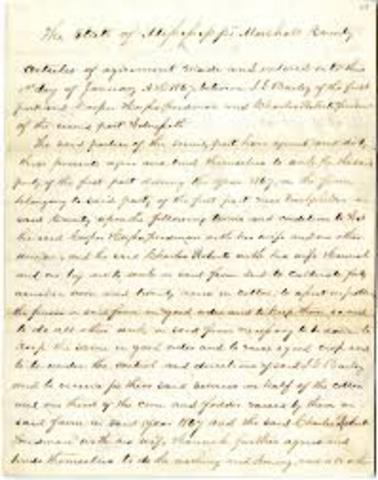 The State of Mississippi Marshall County
Articles of agreement made and entered into this
1st day of January A.D. 1867 between I. G. Bailey of the first
part and Cooper Hughs Freedman and Charles Roberts Freedman
of the second part Witnesseth
The said parties of the second part have agreed and do by
these presents agree and bind themselves to work for the said
party of the first part during the year 1867, on the farm
belonging to said party of the first part near
said County upon the following terms and conditions to wit
the said Cooper Hughs Freedman with his wife and one other
woman, and the said Charles Roberts with his wife Hannah
and one boy are to work on said farm and to cultivate forty
acres in corn and twenty acres in cotton, to assist in putting
the fences on said farm in good order and to keep them so and
to do all other work on said farm necessary to be done to
keep the same in good order and to raise a good crop and
to be under the control and directions of said I G Bailey
and to receive for their said services one half of the cotton
and one third of the corn and fodder raised by them on
said farm in said year 1867 and the said Charles Roberts
Freedman with his wife Hannah further agrees and
binds themselves to do the washing and Ironing, and all other